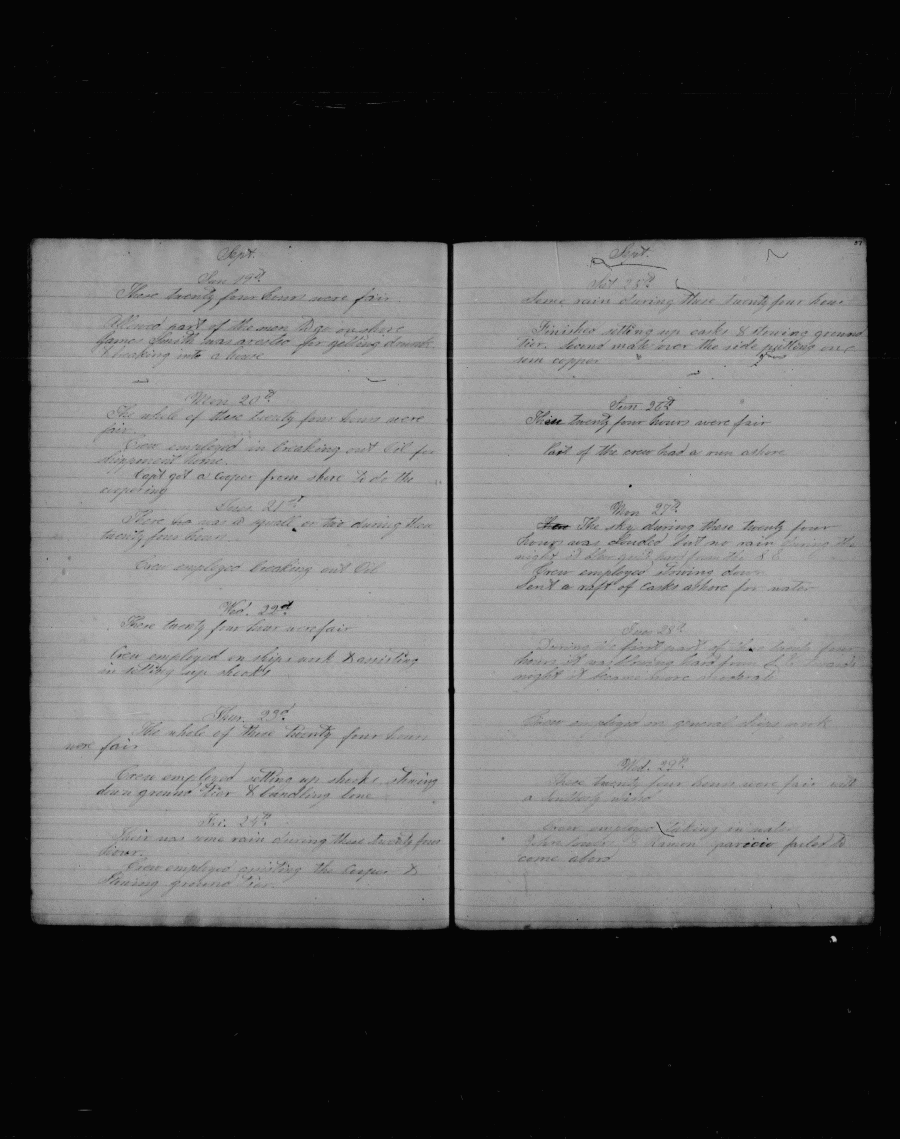 Sept.
Sun 19th
These twenty four hours were fair
Allowed part of the men to go on shore
James Smith was arested for getting drunk &
breaking into a house
Mon 20th
The whole of these twenty four hours were
fair.
Crew employed in breaking out Oil for
shippment home.
Capt got a Cooper from shore to do the
coopering
Tues. 21st
There was a squall or two during these
twenty four hours.
Crew employed breaking out Oil
Wed. 22nd
These twenty four hours were fair
Crew employed on ships work & assisting
in setting up shooks
Thur. 23d
The whole of these twenty four hours
were fair
Crew employed setting up shooks, stowing
down ground tier & bundling bone
Fri. 24th
Their was some rain during these twenty four
hours.
Crew employed assisting the Cooper &
stowing ground tier.
Sept.
Sat 25th
Some rain during these twenty four hours
Finished setting up casks & stowing ground
tier. Second mate over the side putting on
some copper
Sun 26th
These twenty four hours were fair
Part of the crew had a run ashore
Mon 27th
The sky during these twenty four
hours was clouded but no rain during the
night it blew quite hard from the S.E.
Crew employed stowing down
Sent a raft of casks ashore for water
Tues 28th
During the first part of these twenty four
hours it was blowing hard from towards
night it became more moderate
Crew employed on general ships work
Wed. 29th
These twenty four hours were fair with
a Southerly wind
Crew employed taking in water
Ramon failed to
come abord